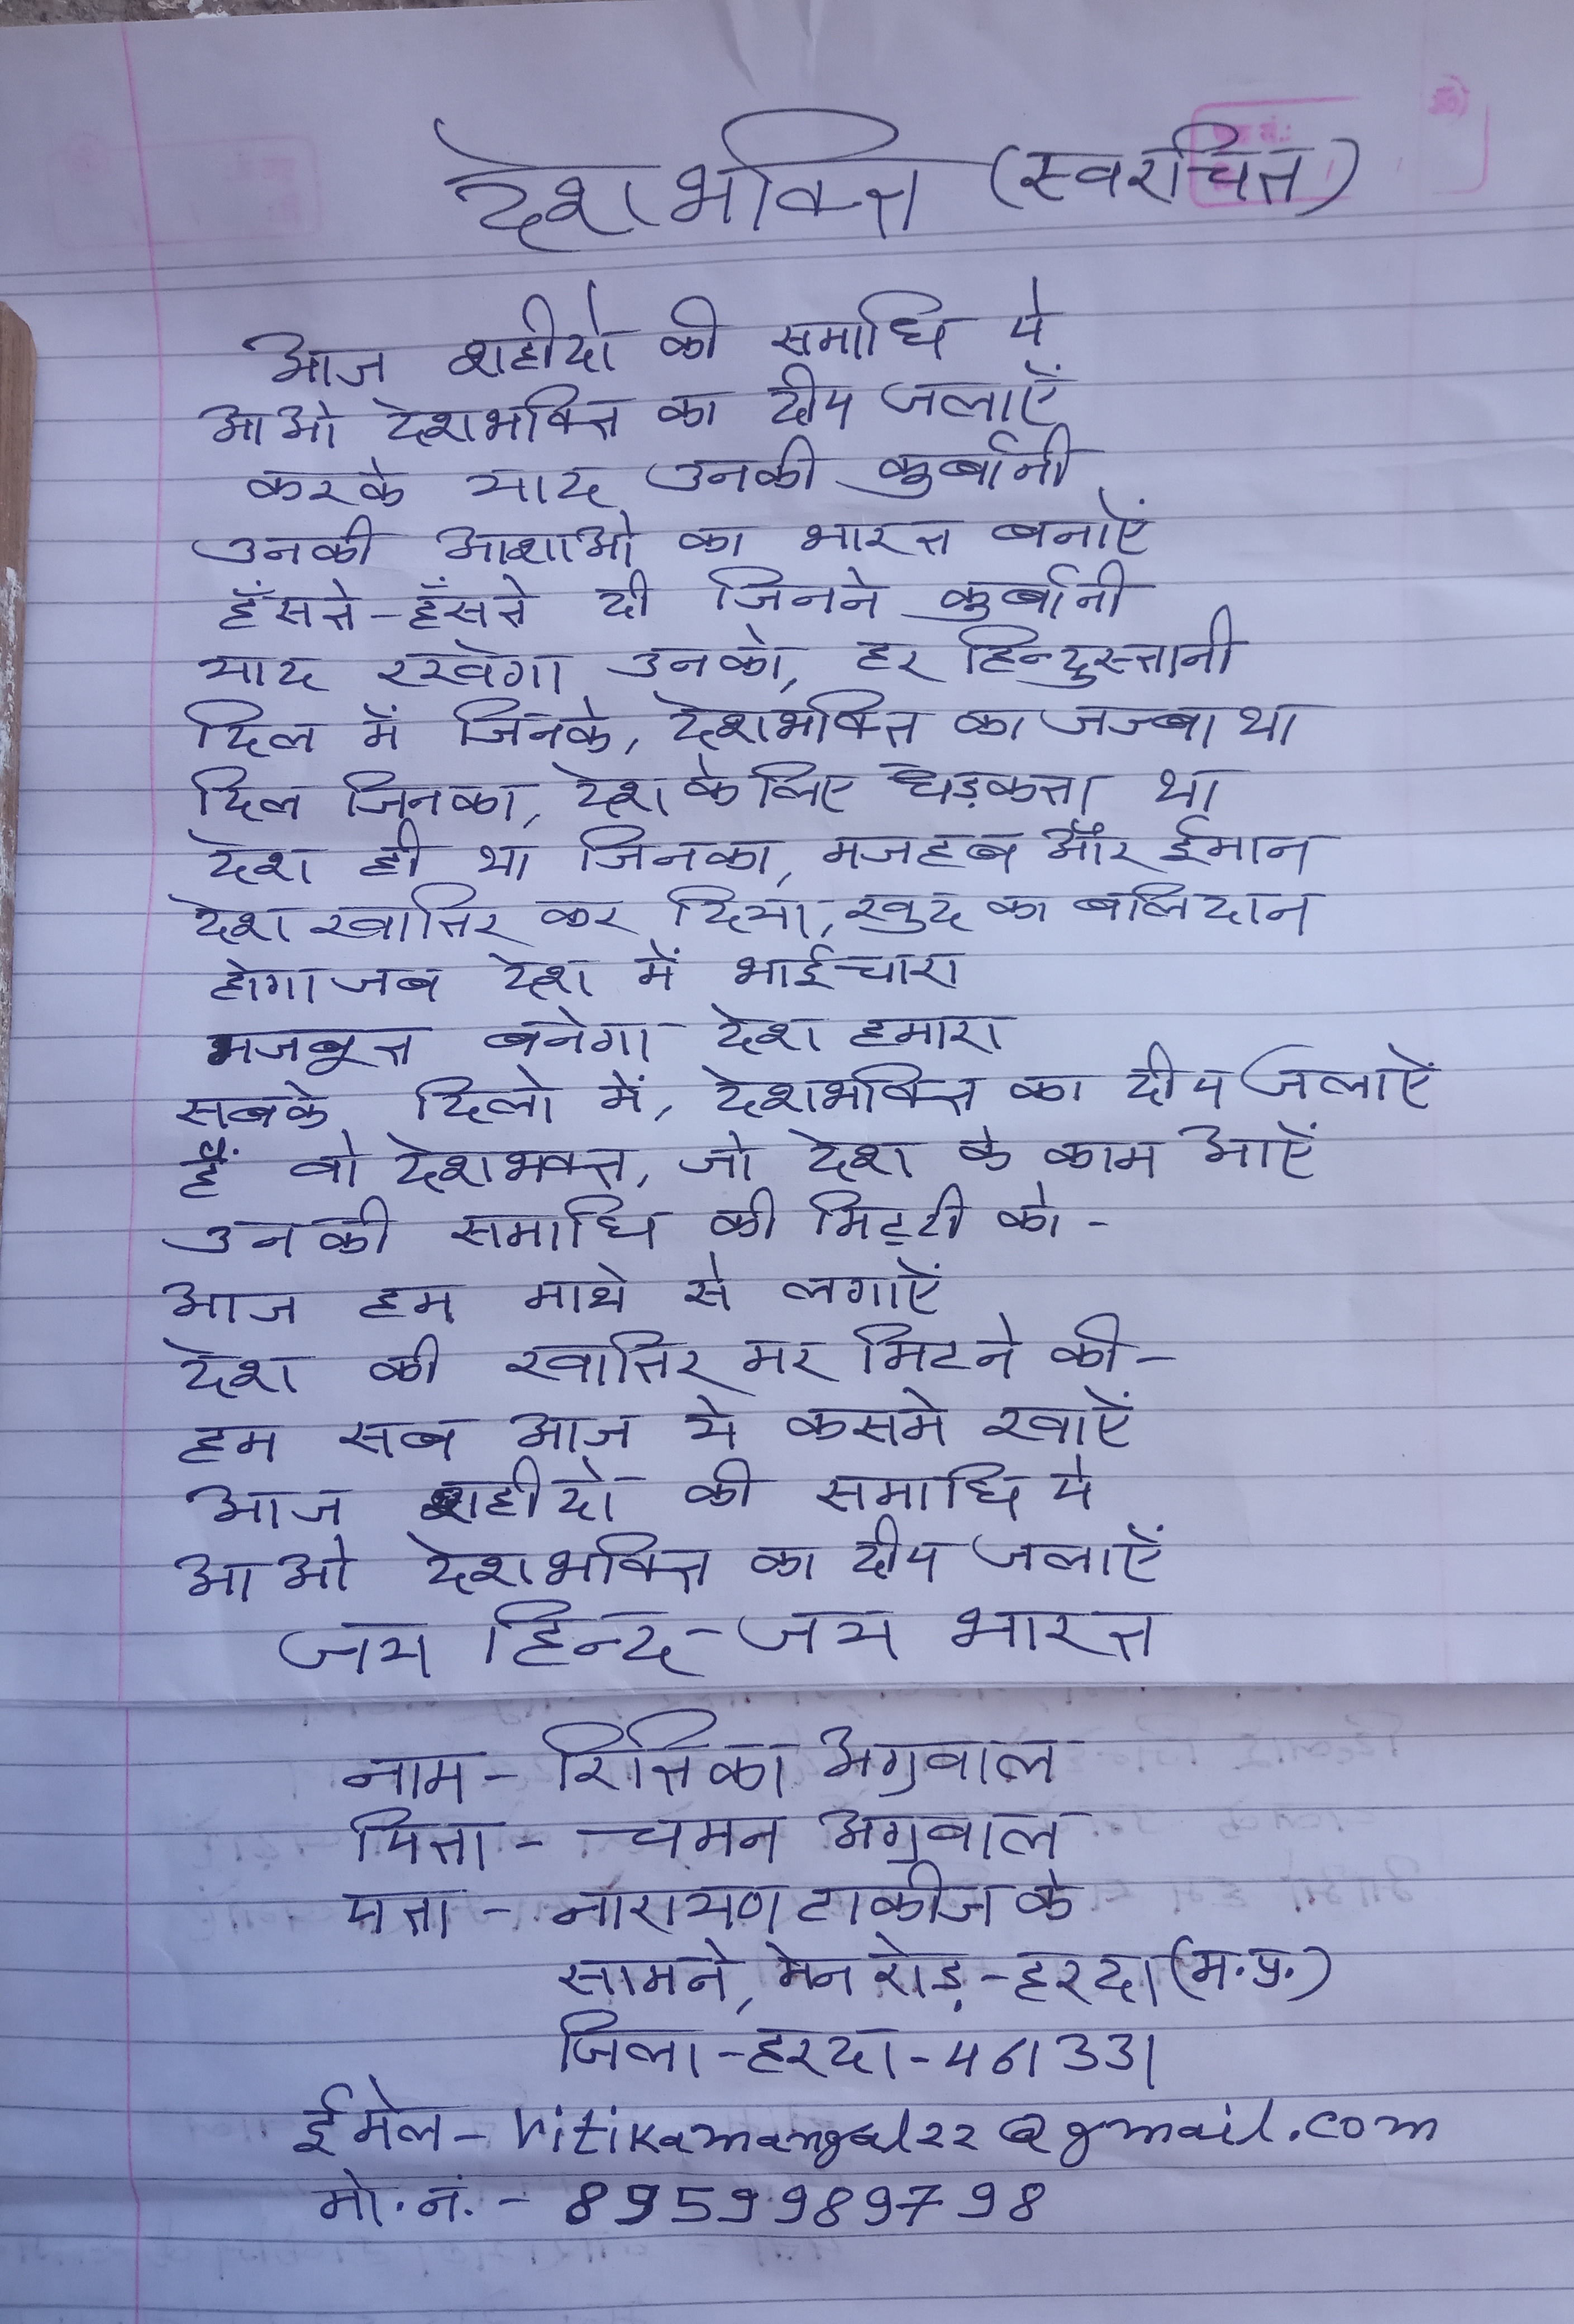 देशभक्ति (स्वरचित)
आज शहीदो की समाधि पे
आओ देशभक्ति का दीप जलाएँ
करके याद उनकी कुर्बानी
उनकी आशाओ का भारत बनाएँ
हँसते-हँसते दी जिनने कुर्बानी
याद रखेगा उनको, हर हिन्दुस्तानी
दिल में जिनके, देशभक्ति का जज्बा था
दिल जिनका, देश के लिए धड़कता था
देश ही था जिनका, मजहब और ईमान
देश खातिर कर दिया, खुद का बलिदान
होगा जब देश में भाईचारा
मजबूत बनेगा देश हमारा
सबके दिलो में, देशभक्ति का दीप जलाएँ
हैं वो देशभक्त, जो देश के काम आएँ
उनकी समाधि की मिट्टी को-
आज हम माथे से लगाएँ
देश की खातिर मर मिटने की-
हम सब आज ये कसमे खाएँ
आज शहीदो की समाधि पे
आओ देशभक्ति का दीप जलाएँ
जय हिन्द-जय भारत
नाम- रितिका अग्रवाल
पिता- चमन अग्रवाल
पता- नारायण टाकीज के
सामने, मेन रोड़-हरदा (म.प्र.)
जिला-हरदा-461331
ईमेल- ritikamangal22@gmail.com
मो.नं.- 8959989798